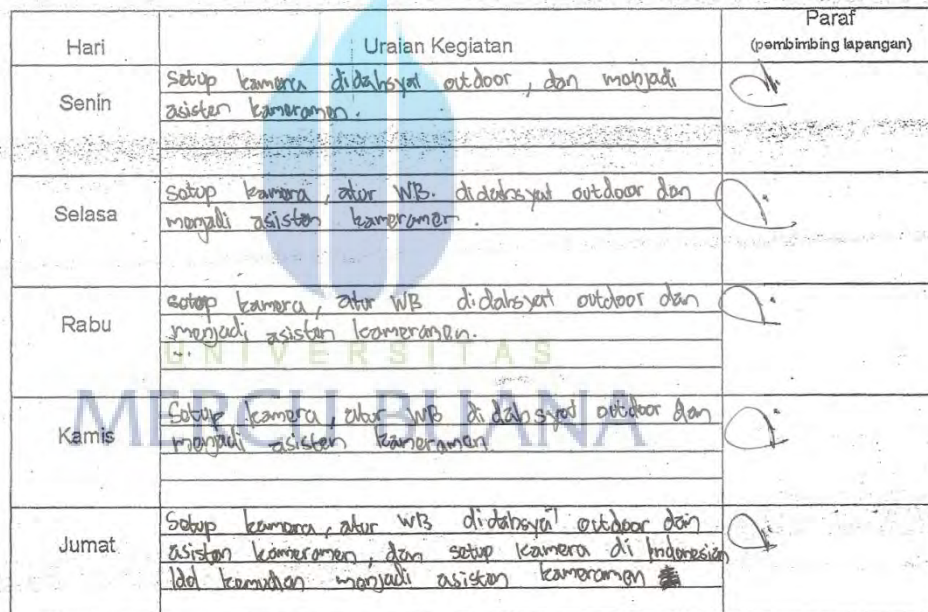 Hari Uraian Kegiatan Paraf
(pembimbing lapangan)
Senin
Setup kamera didahsyat outdoor, dan menjadi
asisten kameramen.
Selasa
Setup kamera, atur WB. didahsyat outdoor dan
menjadi asisten kameramen.
Rabu
Setup kamera, atur WB didahsyat outdoor dan
menjadi asisten kameramen.
UNIVERSITAS
MERCU BUANA
Kamis
Setup kamera, atur WB didahsyat outdoor dan
menjadi asisten kameramen.
Jumat
Setup kamera, atur WB didahsyat outdoor dan
asisten kameramen, dan setup kamera di Indonesian
Idol kemudian menjadi asisten kameramen